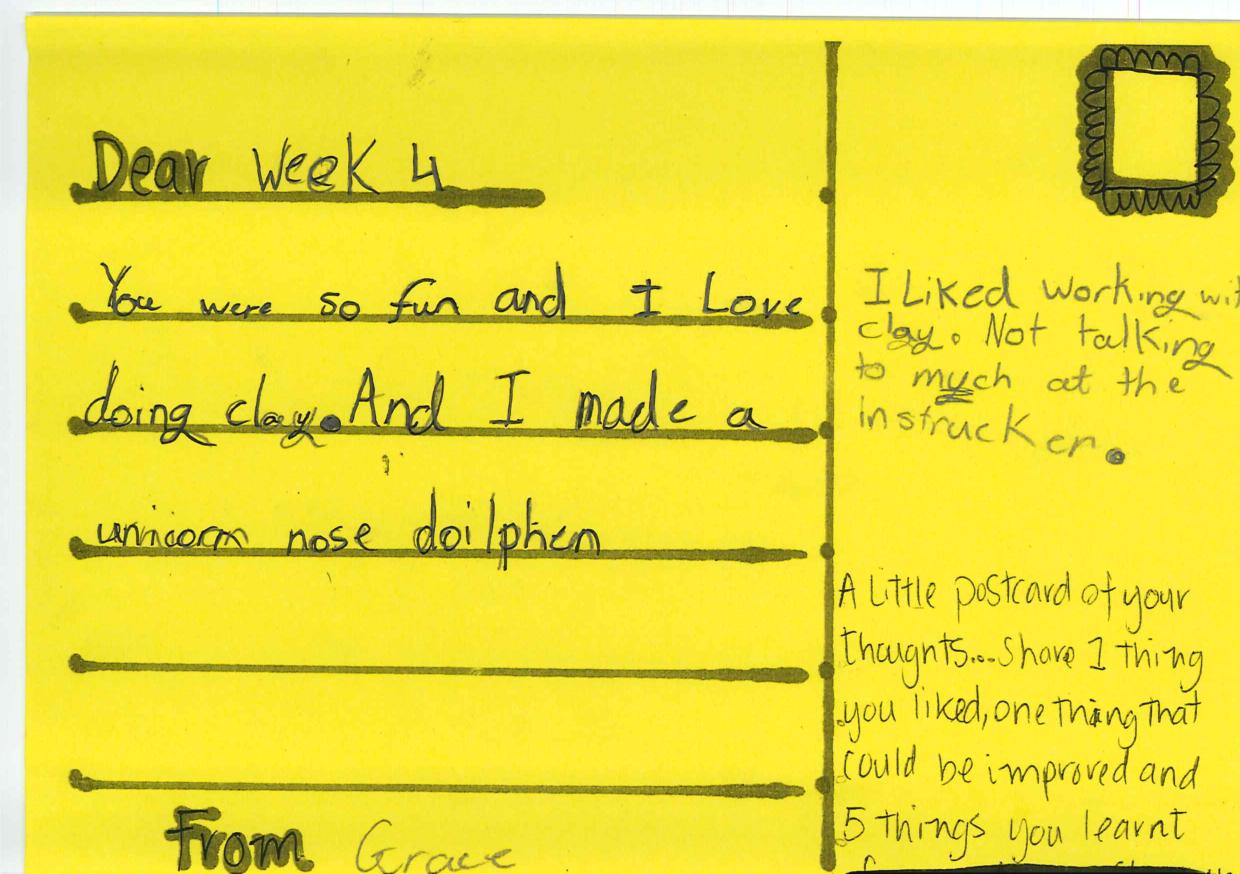 Dear Week 4
You were so fun and I Love
doing clay. And I made a
unicorn nose doilphen
From Grace
I Liked working wit
clay. Not talking
to much at the
instrucker.
A Little postcard of your
thoughts...Share 1 thing
you liked, one thing that
could be improved and
5 things you learnt